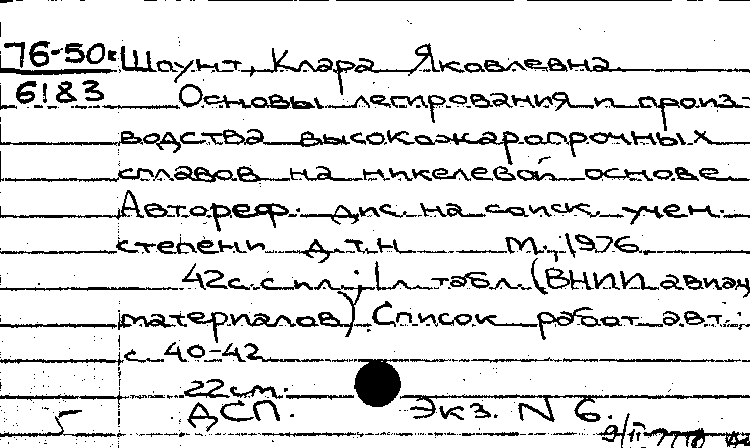 76-50к Шоунт, Клара Яковлевна.
6183 Основы легирования и произ-
водства высокожаропрочных
сплавов на никелевой основе.
Автореф. дис. на соиск. учен.
степени д.т.н М., 1976.
42с. с ил.; 1 л. табл. (ВНИИ авиац
материалов). Список работ авт.:
с. 40-42
22 см.
5 ДСП. Экз. N 6.